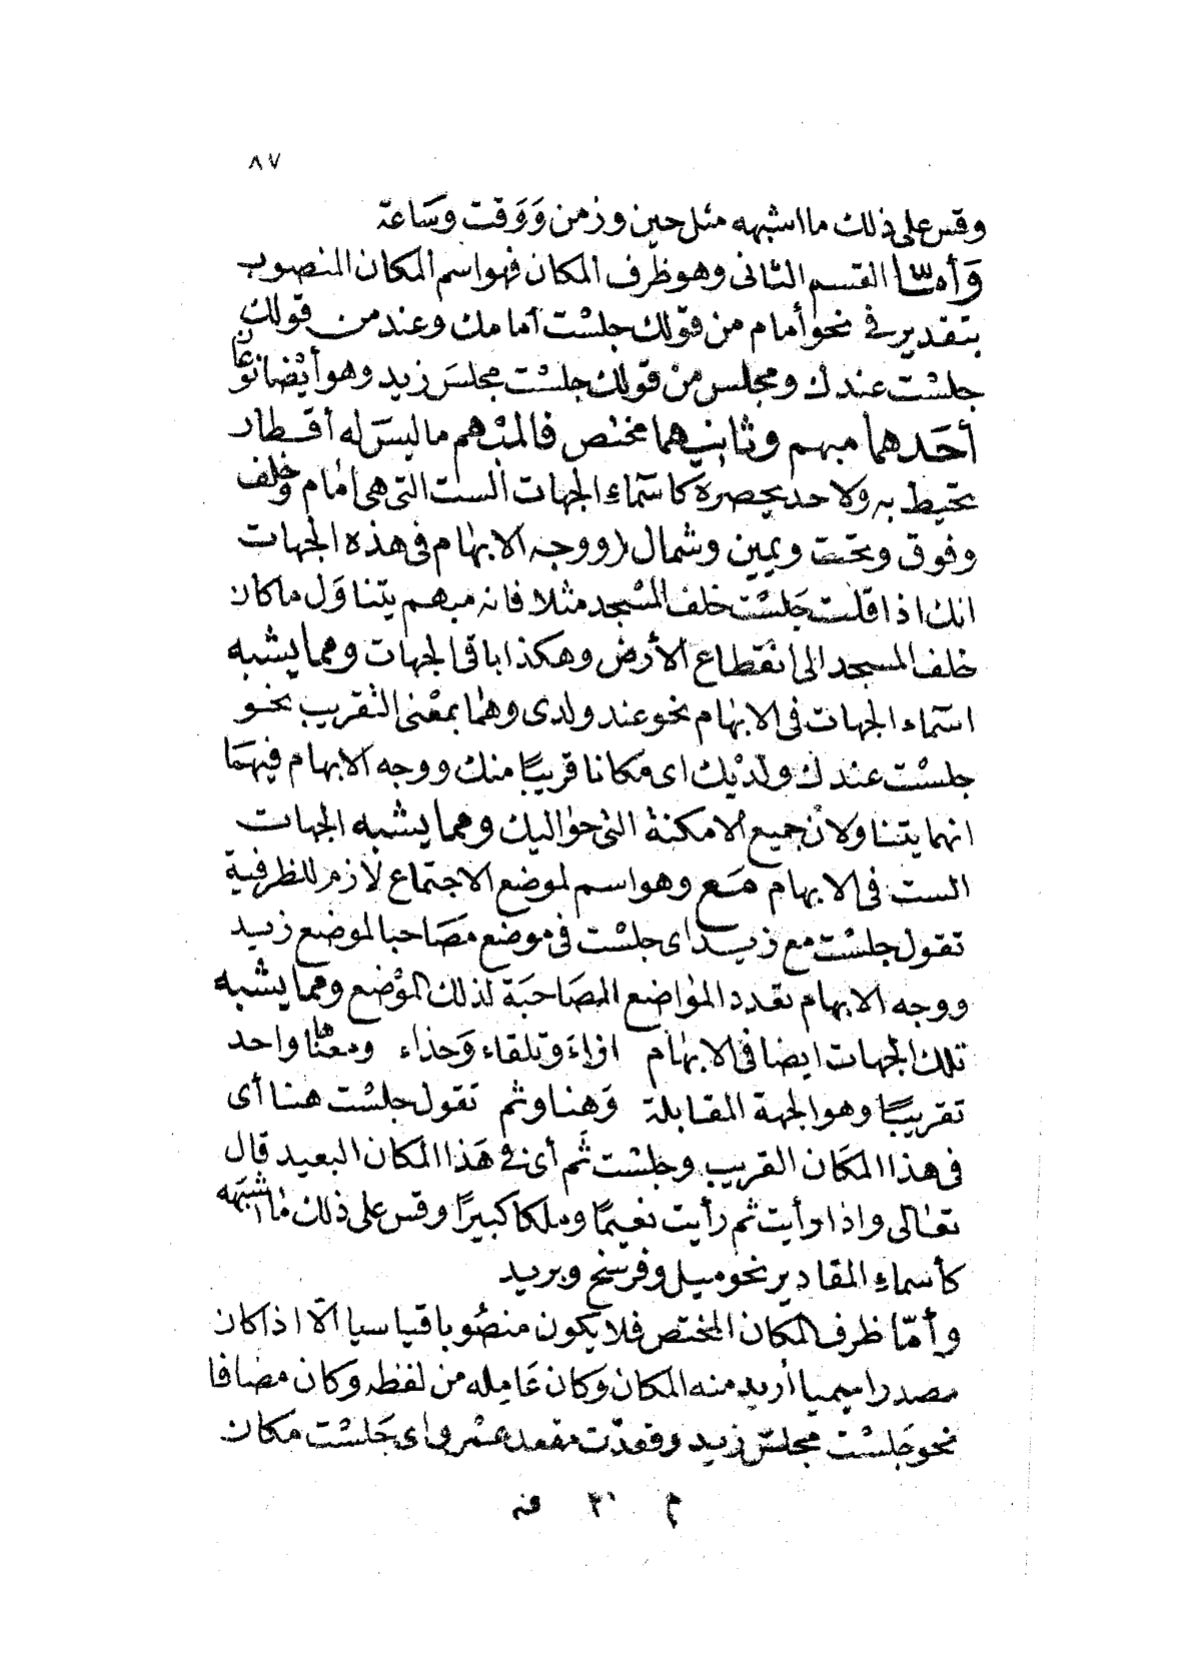 ٨٧
وقس على ذلك ما اشبهه مثل حين وزمن وَوَقت وسَاعة
وَأمّا القسم الثانى وهو ظرف المكان فهو اسم المكان المنصوب
بتقدير فى نحو أمام من قولك جلسْت أمامك وعند من قولك
جلسْت عندك ومجلس من قولك جلسْت مجلسَ زيد وهو أيْضا نوعان
أحَدهما مبهم وثانيهما مختص فالمبْهم ما ليسَ له أقطار
تحيط به ولا حد يحصره كاسَماء الجهات الست التى هى أمام وخلف
وفوق وتحت ويمين وشمال (ووجه الابهام فى هذه الجهات
انك اذا قلت جَلسْت خلف المسْجد مثلا فانه مبهم يتناوَل ما كان
خلف المسجد الى انقطاع الأرض وهكذا باقى الجهات ومما يشبه
اسَماء الجهات فى الابهام نحو عند ولدى وهما بمعْنى التقريب نحو
جلسْت عندك ولدَيْك اى مكانا قريبًا منك ووجه الابهام فيهمَا
انهما يتناولان جميع الامكنة التى حواليك ومما يشبه الجهات
الست فى الابهام مَع وهو اسم لموضع الاجتماع لازم للظرفية
تقول جلسْت مع زيد اى جلسْت فى موضع مصَاحبا لموضع زيد
ووجه الابهام تعدد المواضع المصَاحبَة لذلك الموْضع ومما يشبه
تلك الجهات ايضا فى الابهام ازاءَ وتلقاء وَحذاء ومعناها واحد
تقريبًا وهو الجهة المقابلة وَهنا وثم تقول جلسْت هنا أى
فى هذا المكَان القريب وجلسْت ثَم أى فى هَذا المكان البعيد قال
تعالى واذا رأيت ثم رأيت نعيمًا وملكا كبيرًا وقس على ذلك ما اشبَهه
كأسماءِ المقادير نحو ميل وفرسَخ وبريد
وأمّا ظرف المكان المختص فلا يكون منصُوبا قياسيا الّا اذا كان
مصدرا ميميا أريد منه المكان وكان عَامِله من لفظه وكان مضافا
نحو جَلسْت مجلسَ زيد وقعدْت مقعد عمْرو اى جَلسْت مكان